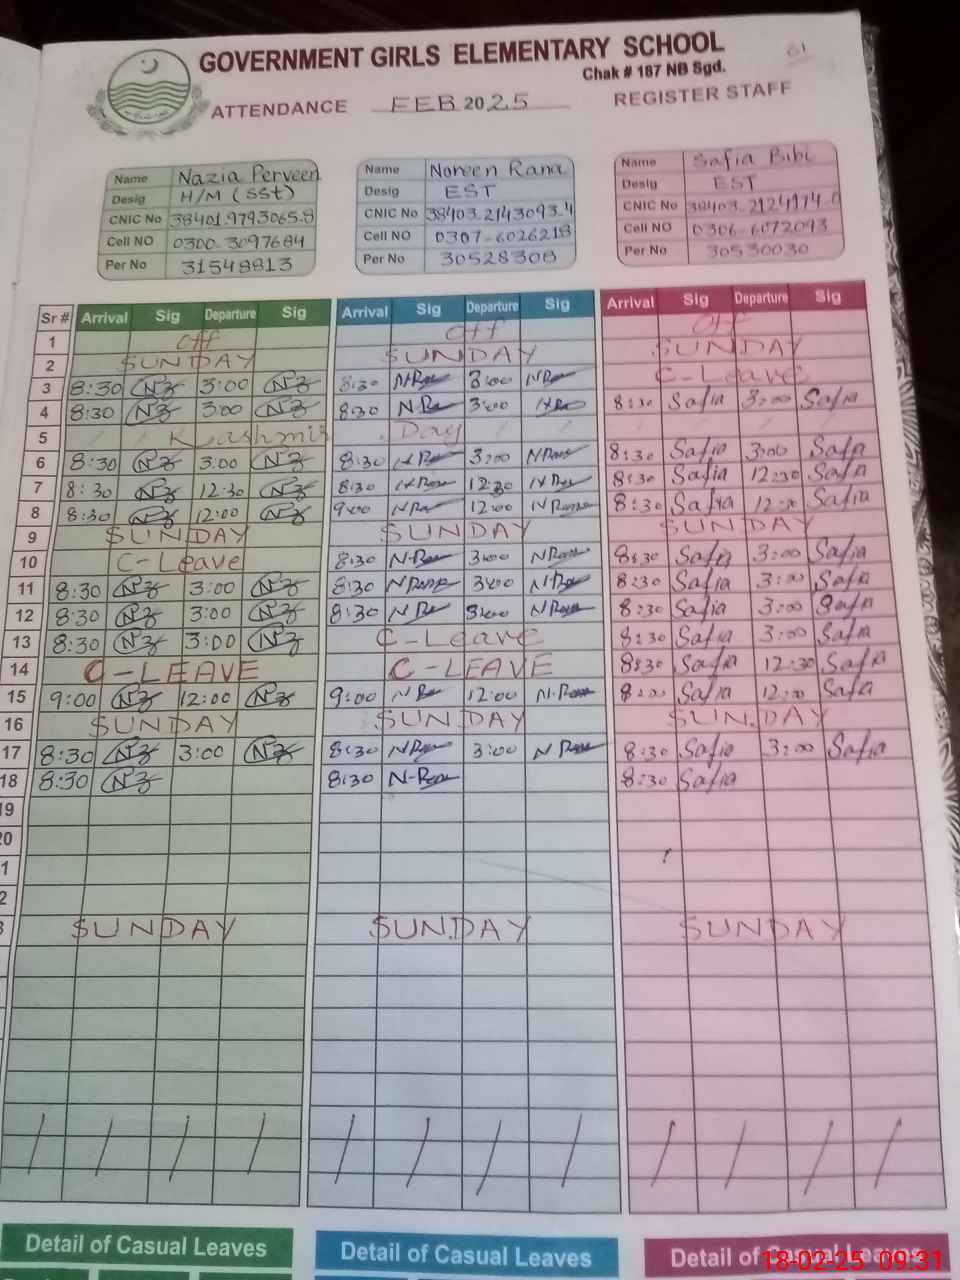 GOVERNMENT GIRLS ELEMENTARY SCHOOL
Chak # 187 NB Sgd.
ATTENDANCE FEB 2025 REGISTER STAFF
Name Nazia Perveen
Desig H/M (SSt)
CNIC No 38401.9793065.8
Cell NO 0300-3097684
Per No 31548813
Name Noreen Rana
Desig EST
CNIC No 38403-2143093-4
Cell NO 0307-6026218
Per No 30528308
Name Safia Bibi
Desig EST
CNIC No
Cell NO 0306-6072093
Per No 30530030
Sr # Arrival Sig Departure Sig Arrival Sig Departure Sig Arrival Sig Departure Sig
1 off off off
2 SUNDAY SUNDAY SUNDAY
3 8:30 Nz 3:00 Nz 8:30 3:00 C-Leave
4 8:30 Nz 3:00 Nz 8:30 3:00 8:30 Safia 3:00 Safia
5 Kashmir Day
6 8:30 Nz 3:00 Nz 8:30 3:00 8:30 Safia 3:00 Safia
7 8:30 Nz 12:30 Nz 8:30 12:30 8:30 Safia 12:30 Safia
8 8:30 Nz 12:00 Nz 9:00 12:00 8:30 Safia Safia
9 SUNDAY SUNDAY SUNDAY
10 C-Leave 8:30 3:00 8:30 Safia 3:00 Safia
11 8:30 Nz 3:00 Nz 8:30 3:00 8:30 Safia 3:00 Safia
12 8:30 Nz 3:00 Nz 8:30 3:00 8:30 Safia 3:00 Safia
13 8:30 Nz 3:00 Nz C-Leave 8:30 Safia 3:00 Safia
14 C-LEAVE C-LEAVE 8:30 Safia 12:30 Safia
15 9:00 Nz 12:00 Nz 9:00 12:00 Safia Safia
16 SUNDAY SUNDAY SUNDAY
17 8:30 Nz 3:00 Nz 8:30 3:00 8:30 Safia 3:00 Safia
18 8:30 Nz 8:30 8:30 Safia
19
20
1
2
3 SUNDAY SUNDAY SUNDAY
Detail of Casual Leaves Detail of Casual Leaves Detail of Casual Leaves
18-02-25 09:31